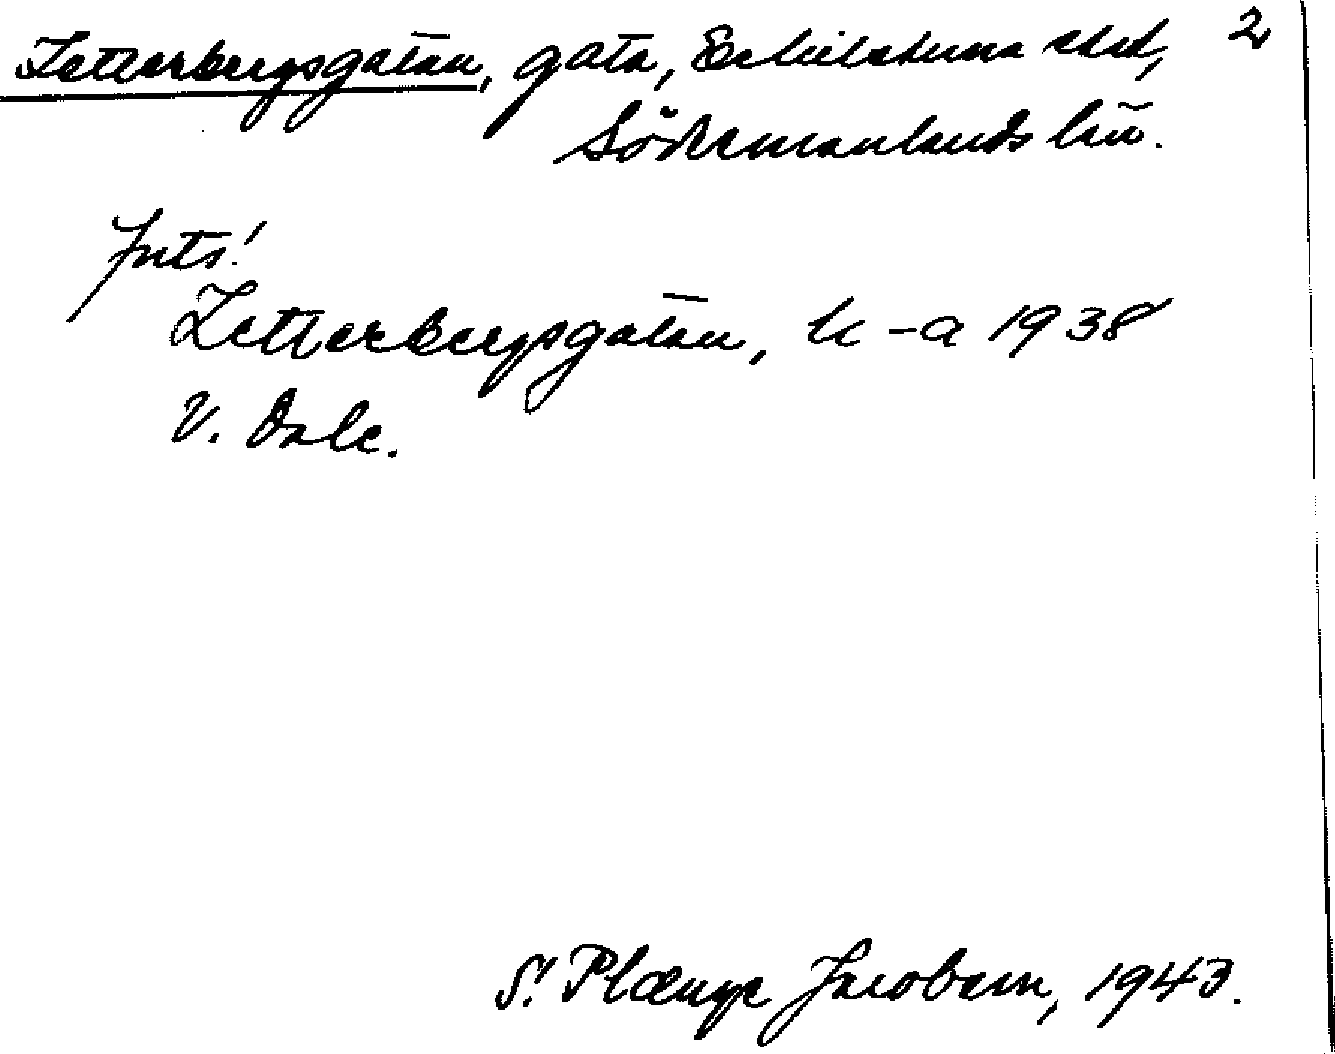 Zetterbergsgatan, gata, Eskilstuna stad, 2
Södermanlands län.
Zetterbergsgatan, k-a 1938
V. Dale.
S. Plænge Jacobson, 1943.